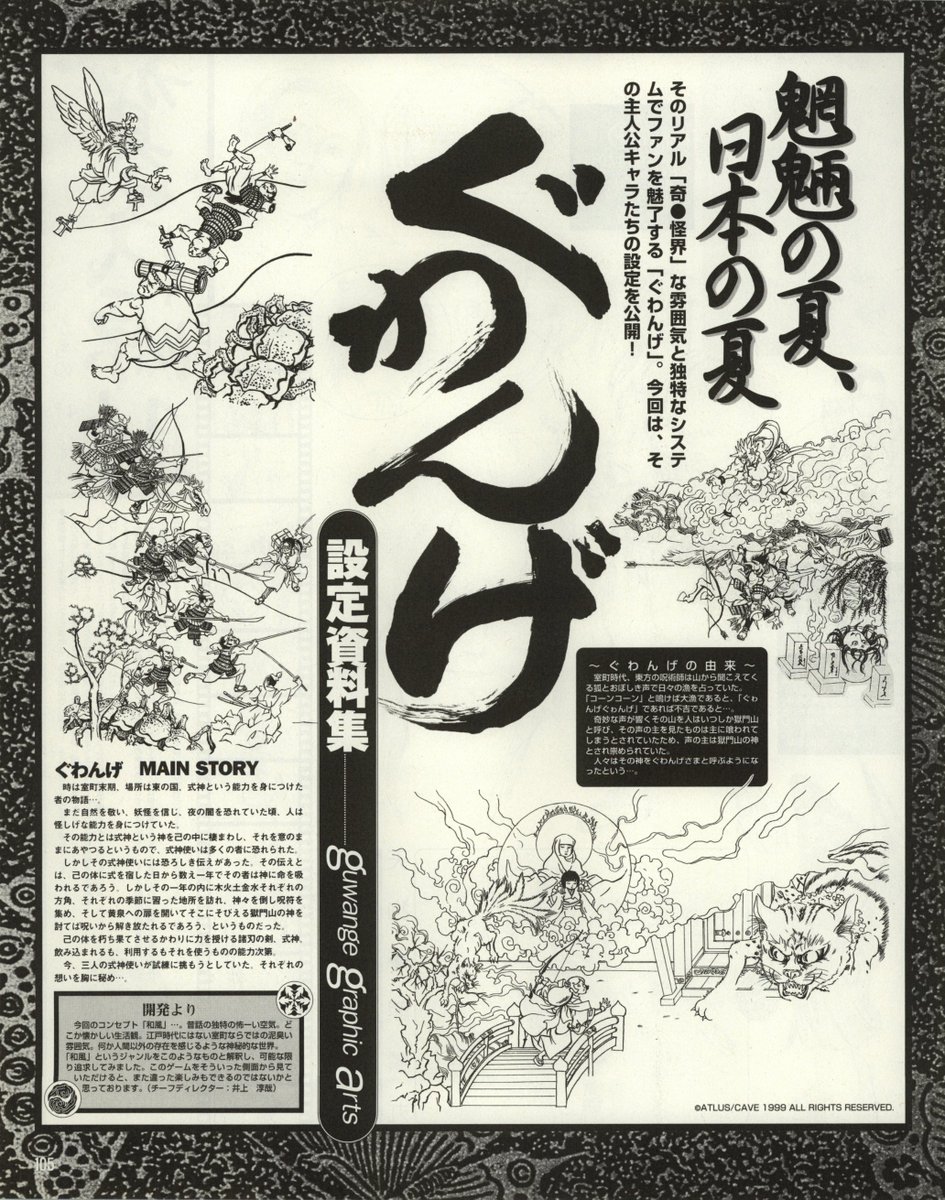 魍魎の夏、
日本の夏
そのリアル「奇●怪界」な雰囲気と独特なシステ
ムでファンを魅了する「ぐわんげ」。今回は、そ
の主人公キャラたちの設定を公開!
ぐわんげ
設定資料集
guwange graphic arts
〜ぐわんげの由来〜
室町時代、東方の呪術師は山から聞こえてく
る狐とおぼしき声で日々の漁を占っていた。
「コーンコーン」と鳴けば大漁であると、「ぐわ
んげぐわんげ」であれば不吉であると…。
奇妙な声が響くその山を人はいつしか獄門山
と呼び、その声の主を見たものは主に喰われて
しまうとされていたため、声の主は獄門山の神
とされ崇められていた。
人々はその神をぐわんげさまと呼ぶようにな
ったという…。
ぐわんげ MAIN STORY
時は室町末期、場所は東の国、式神という能力を身につけた
者の物語…。
まだ自然を敬い、妖怪を信じ、夜の闇を恐れていた頃、人は
怪しげな能力を身につけていた。
その能力とは式神という神を己の中に棲まわし、それを意のま
まにあやつるというもので、式神使いは多くの者に恐れられた。
しかしその式神使いには恐ろしき伝えがあった。その伝えと
は、己の体に式を宿した日から数え一年でその者は神に命を吸
われるであろう。しかしその一年の内に木火土金水それぞれの
方角、それぞれの季節に習った地所を訪れ、神々を倒し呪符を
集め、そして黄泉への扉を開いてそこにそびえる獄門山の神を
討てば呪いから解き放たれるであろう、というものだった。
己の体を朽ち果てさせるかわりに力を授ける諸刃の剣、式神。
飲み込まれるも、利用するもそれを使うものの能力次第。
今、三人の式神使いが試練に挑もうとしていた。それぞれの
想いを胸に秘め…。
開発より
今回のコンセプト「和風」…。昔話の独特の怖ーい空気。ど
こか懐かしい生活観。江戸時代にはない室町ならではの泥臭い
雰囲気。何か人間以外の存在を感じるような神秘的な世界。
「和風」というジャンルをこのようなものと解釈し、可能な限
り追求してみました。このゲームをそういった側面から見て
いただけると、また違った楽しみもできるのではないかと
思っております。(チーフディレクター:井上 淳哉)
©ATLUS/CAVE 1999 ALL RIGHTS RESERVED.
105